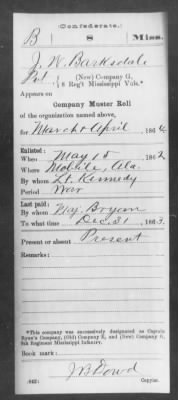 (Confederate.)
B 8 Miss.
J. W. Barksdale
Pvt., (New) Company G,
8 Reg't Mississippi Vols.*
Appears on
Company Muster Roll
of the organization named above,
for March & April, 1864.
Enlisted:
When May 15, 1862
Where Mobile, Ala.
By whom Lt. Kennedy
Period War
Last paid:
By whom Maj. Bryan
To what time Dec. 31, 1863.
Present or absent Present
Remarks:
*This company was successively designated as Captain
Company E, and (New) Company G,
8th Regiment Mississippi Infantry.
Book mark:
(642)
J B Dowd
Copyist.